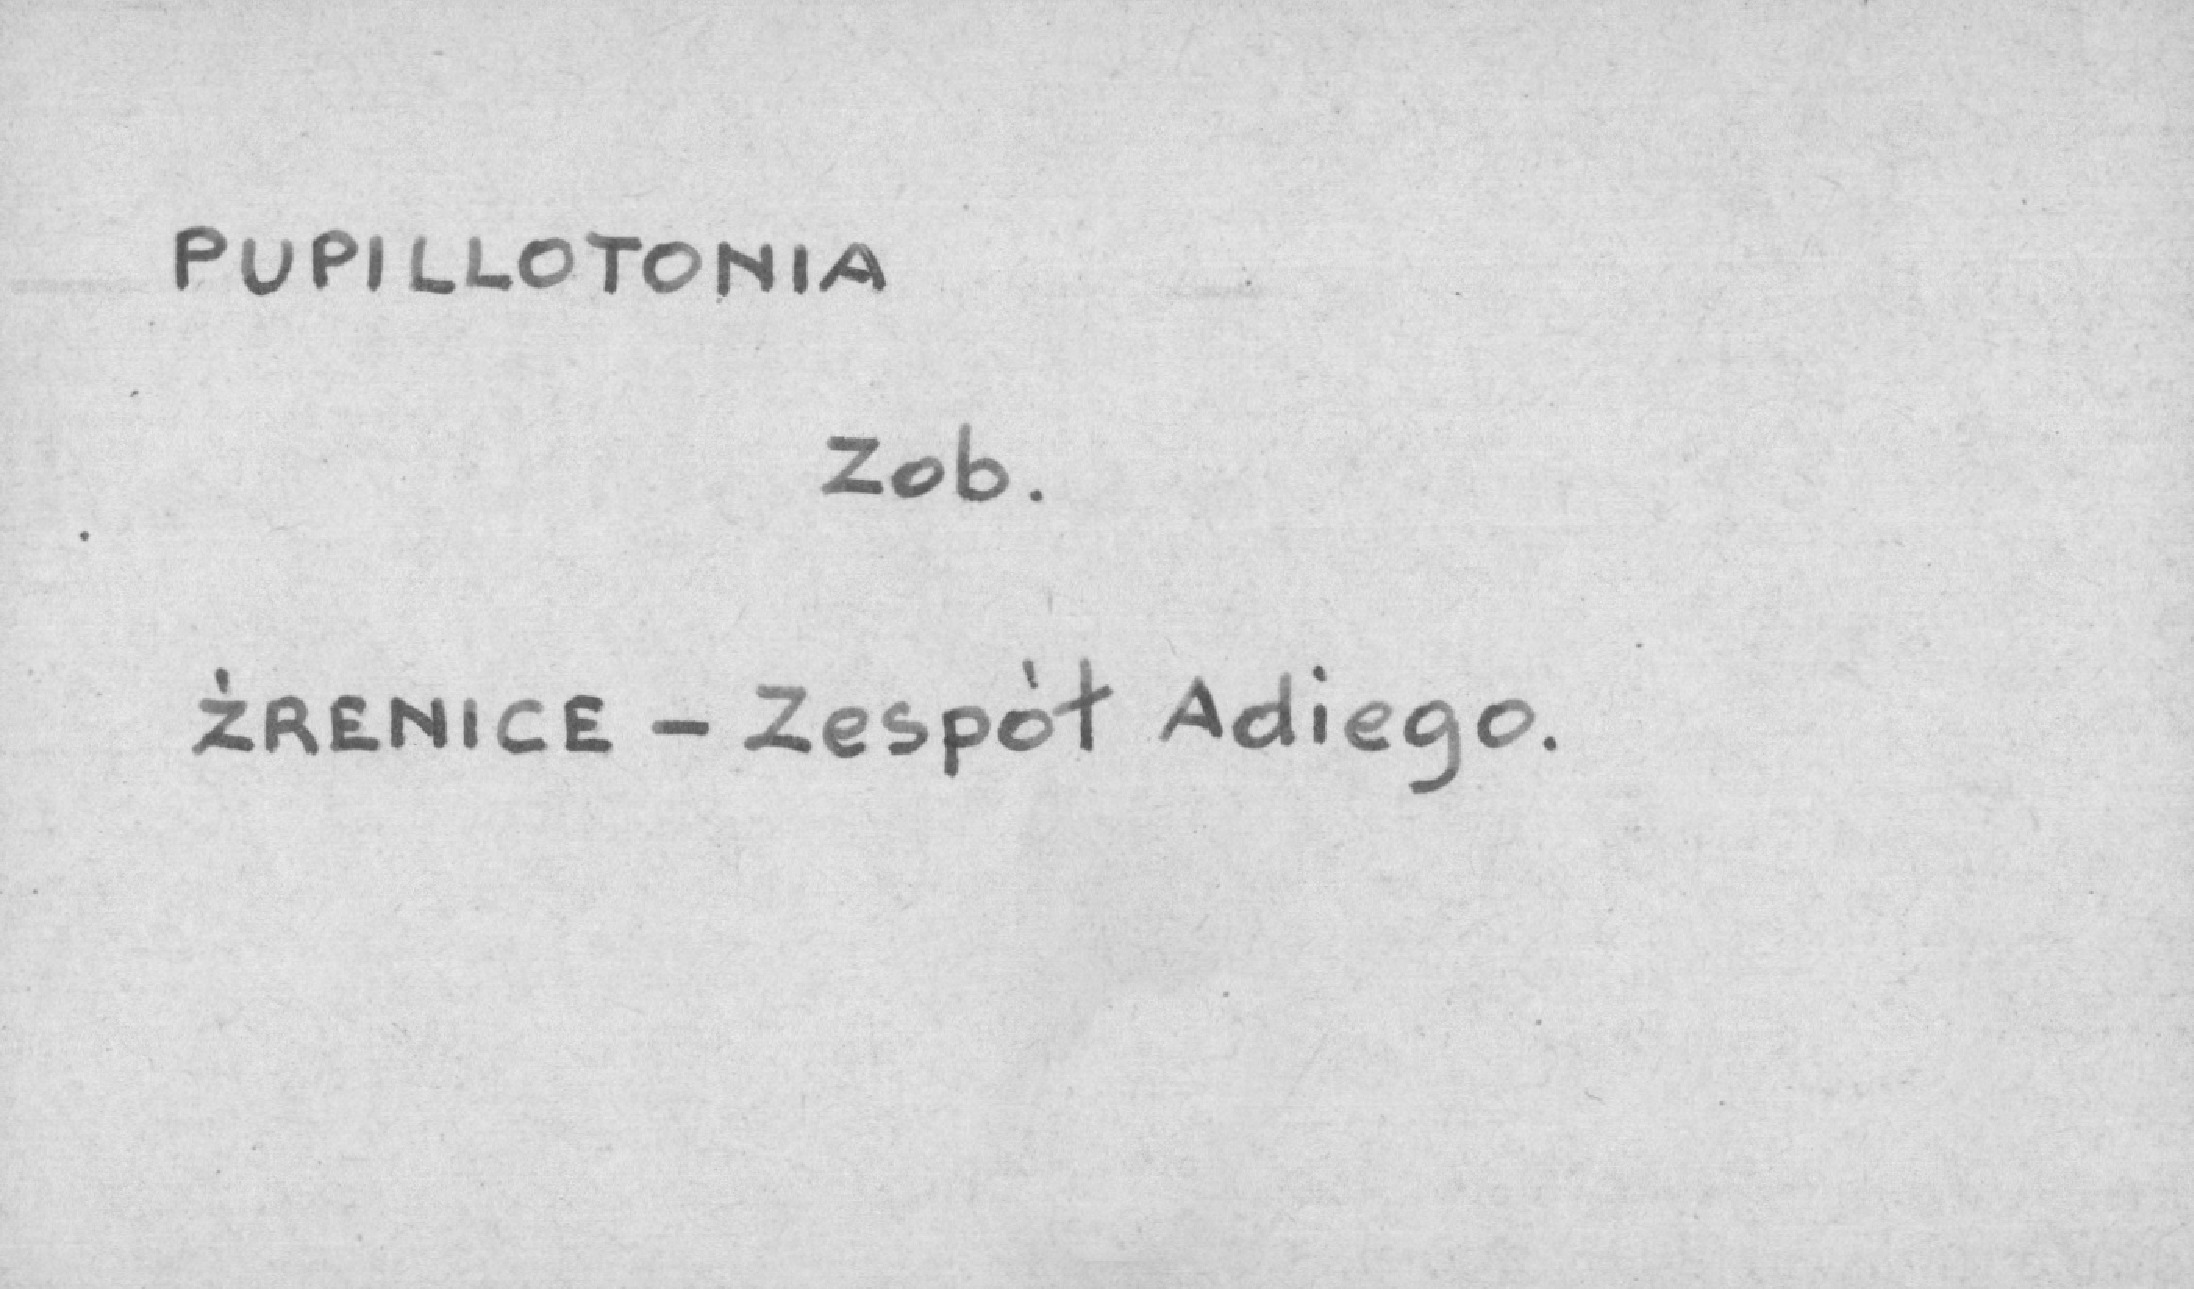 PUPILLOTONIA
Zob.
ŹRENICE - Zespół Adiego.